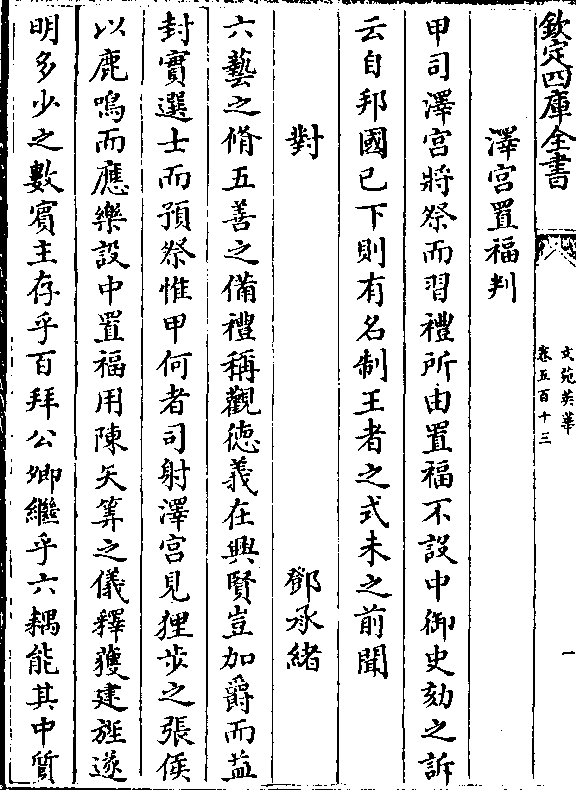 欽定四庫全書
文苑英華
卷五百十三
一
澤宮置福判
甲司澤宮將祭而習禮所由置福不設中御史劾之訴
云自邦國已下則有名制王者之式未之前聞
對
鄧承緒
六藝之脩五善之備禮稱觀徳義在興賢豈加爵而益
封實選士而預祭惟甲何者司射澤宮見狸步之張侯
以鹿鳴而應樂設中置福用陳矢筭之儀釋獲建旌遂
明多少之數賓主存乎百拜公卿繼乎六耦能其中質